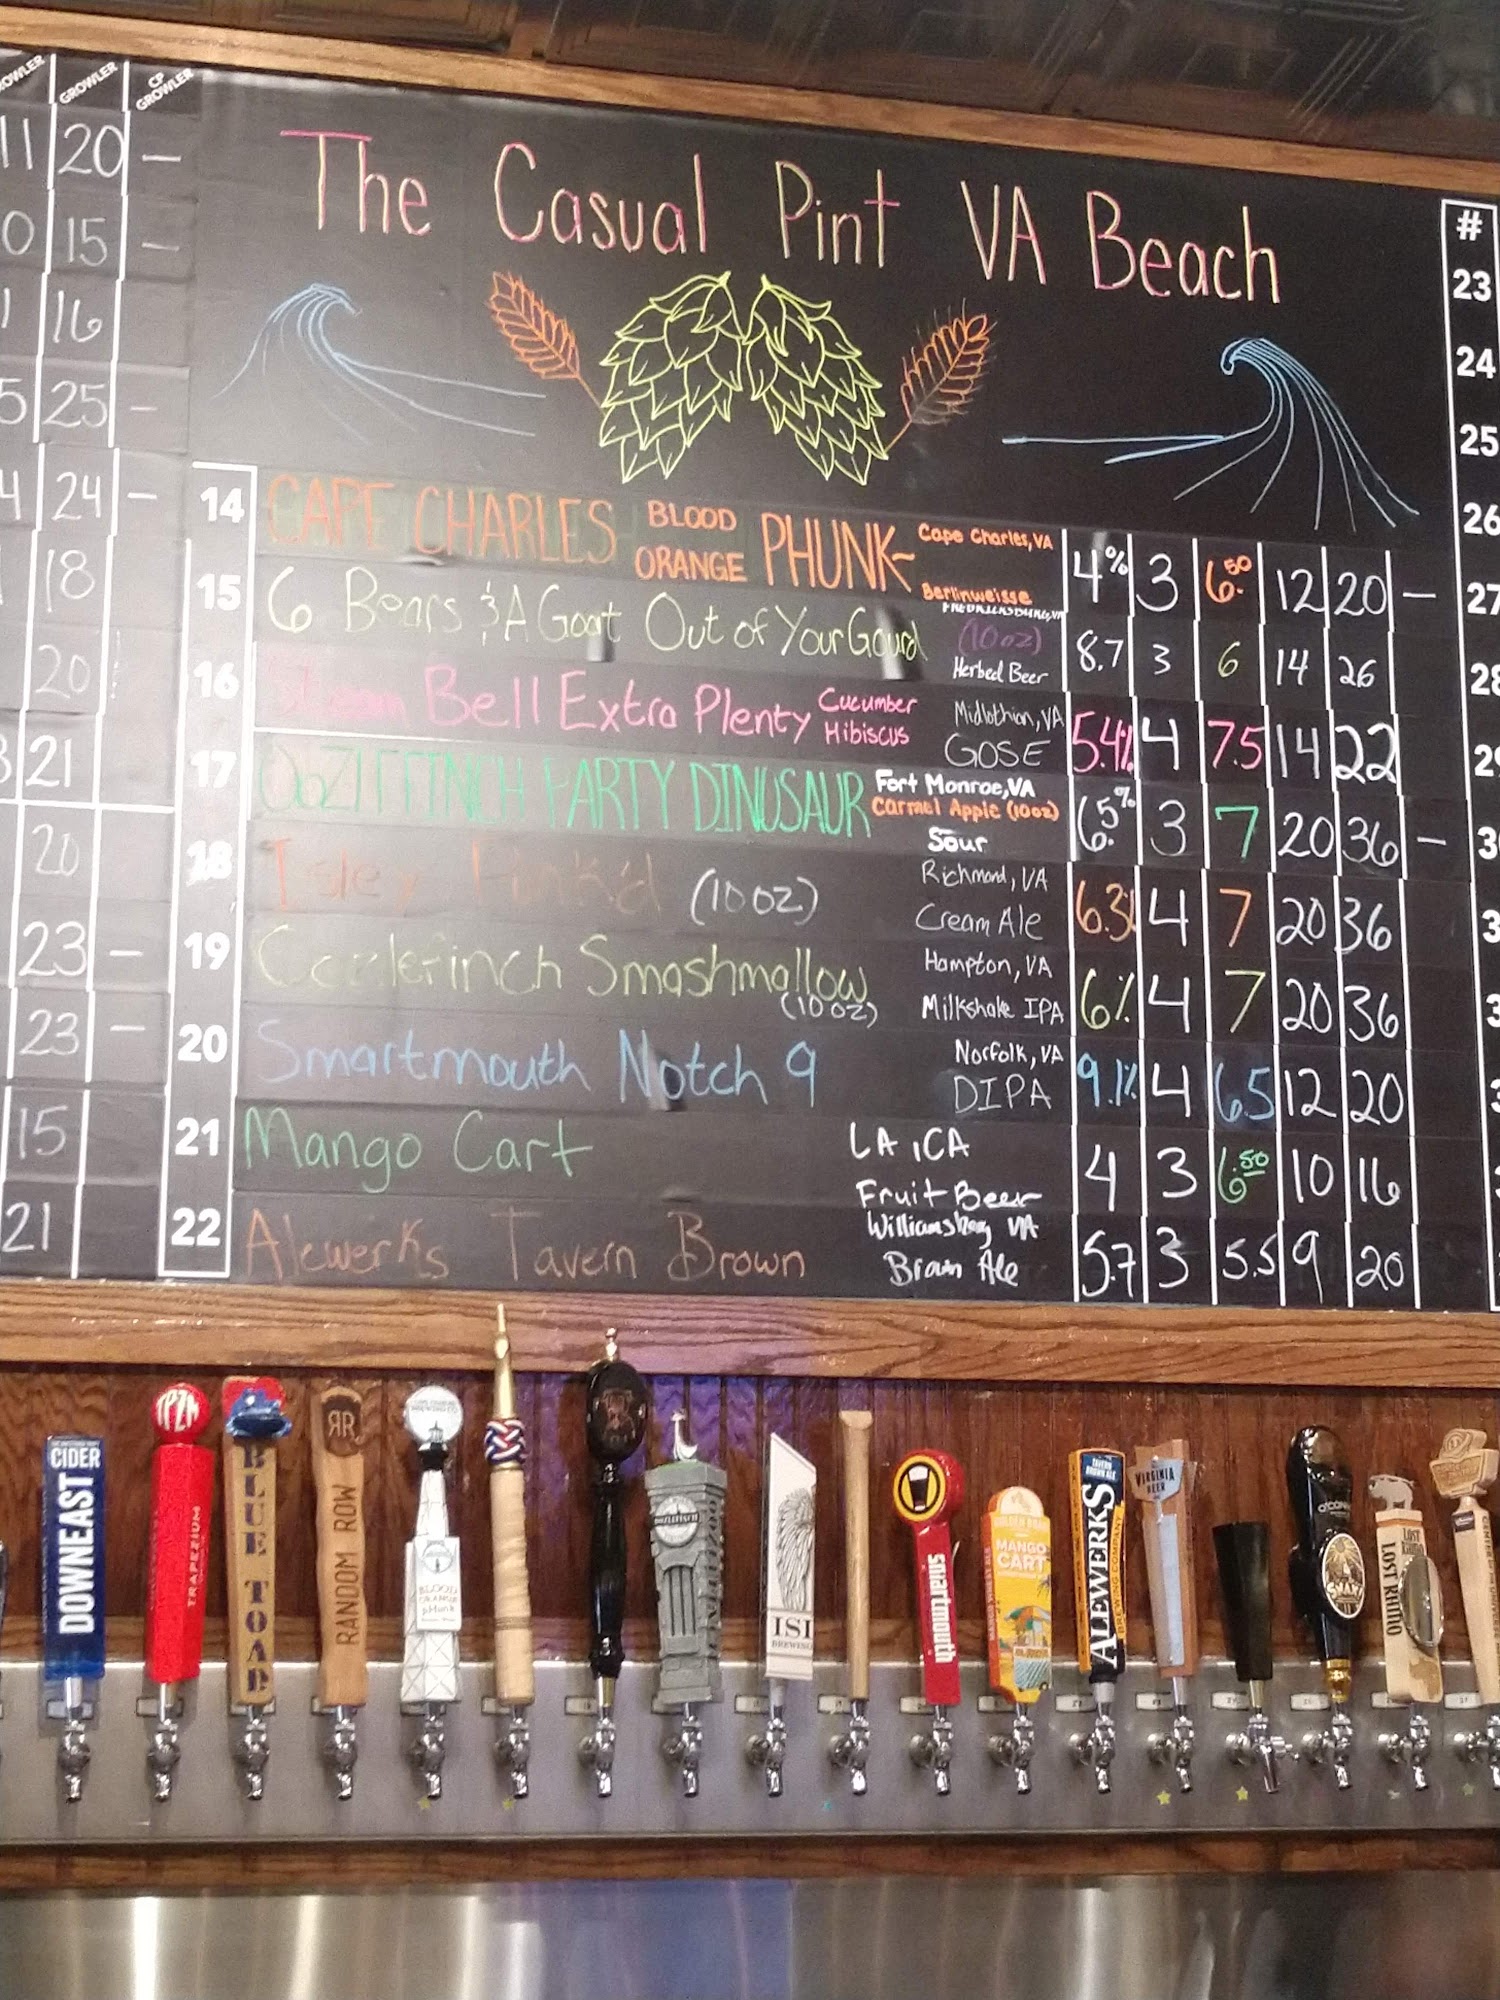 GROWLER
CP GROWLER
11 20 —
0 15 —
1 16
5 25 —
4 24 —
18
20
21
20
23 —
23 —
15
21
The Casual Pint VA Beach
14 CAPE CHARLES BLOOD ORANGE PHUNK- Cape Charles, VA Berlinweisse 4% 3 6.50 12 20 —
15 6 Bears & A Goat Out of Your Gourd FREDRICKSBURG, VA (10oz) Herbed Beer 8.7 3 6 14 26
16 Bell Extra Plenty Cucumber Hibiscus Midlothian, VA GOSE 5.4% 4 7.5 14 22
17 OOZLEFINCH PARTY DINUSAUR Fort Monroe, VA Carmel Apple (10oz) Sour 6.5% 3 7 20 36 —
18 Isley Funk'd (10 oz) Richmond, VA Cream Ale 6.3% 4 7 20 36
19 Smashmallow (10 oz) Hampton, VA Milkshake IPA 6% 4 7 20 36
20 Smartmouth Notch 9 Norfolk, VA DIPA 9.1% 4 6.5 12 20
21 Mango Cart LA, CA Fruit Beer 4 3 6.50 10 16
22 Alewerks Tavern Brown Williamsburg VA Brown Ale 5.7 3 5.5 9 20
#
23
24
25
26
27
28
CIDER
DOWNEAST
TPZM
TRAPEZIUM
BLUE TOAD
RR
RANDOM ROW
BLOOD
ORANGE
PHUNK
ISL
BREWING
smartmouth
MANGO
CART
TAVERN
BROWN ALE
ALEWERKS
BREWING COMPANY
VIRGINIA
BEER
LOST RHINO